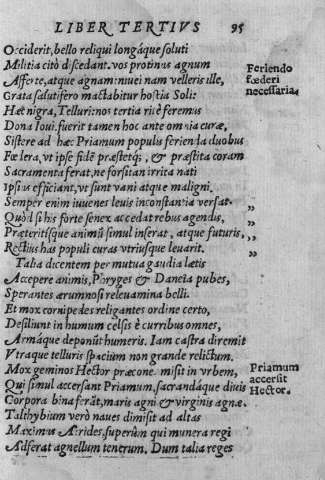 LIBER TERTIVS 95
Occiderit, bello reliqui longáque soluti
Militia citò discedant. vos protinus agnum
Afferte, atque agnam: niuei nam velleris ille,
Grata salutifero mactabitur hostia Soli:
Hæc nigra, Telluri: nos tertia rite feremus
Dona Ioui. fuerit tamen hoc ante omnia curæ,
Sistere ad hæc Priamum populis ferienda duobus
Fœdera, vt ipse fidē præstetq́;, & præstita coram
Sacramenta ferat, ne forsitan irrita nati
Ipsius efficiant, vt sunt vani atque maligni.
Semper enim iuuenes leuis inconstantia versat.
Quòd si his forte senex accedat rebus agendis,
Præteritísque animū simul inserat, atque futuris,
Rectius has populi curas vtriusque leuarit.
Talia dicentem per mutua gaudia lætis
Accepere animis, Phryges & Danaëia pubes,
Sperantes ærumnosi releuamina belli.
Et mox cornipedes religantes ordine certo,
Desiliunt in humum celsis è curribus omnes,
Armáque deponūt humeris. Iam castra diremit
Vtraque telluris spacium non grande relictum.
Mox geminos Hector præcone. misit in vrbem,
Qui simul accersant Priamum, sacrandáque diuis
Corpora bina ferāt, maris agni & virginis agnæ.
Talthybium verò naues dimisit ad altas
Maximus Atrides, superûm qui munera regi
Adferat agnellum tenerum. Dum talia reges
Feriendo
fœderi
necessaria.
„
„
„
„
Priamum
accersit
Hector.